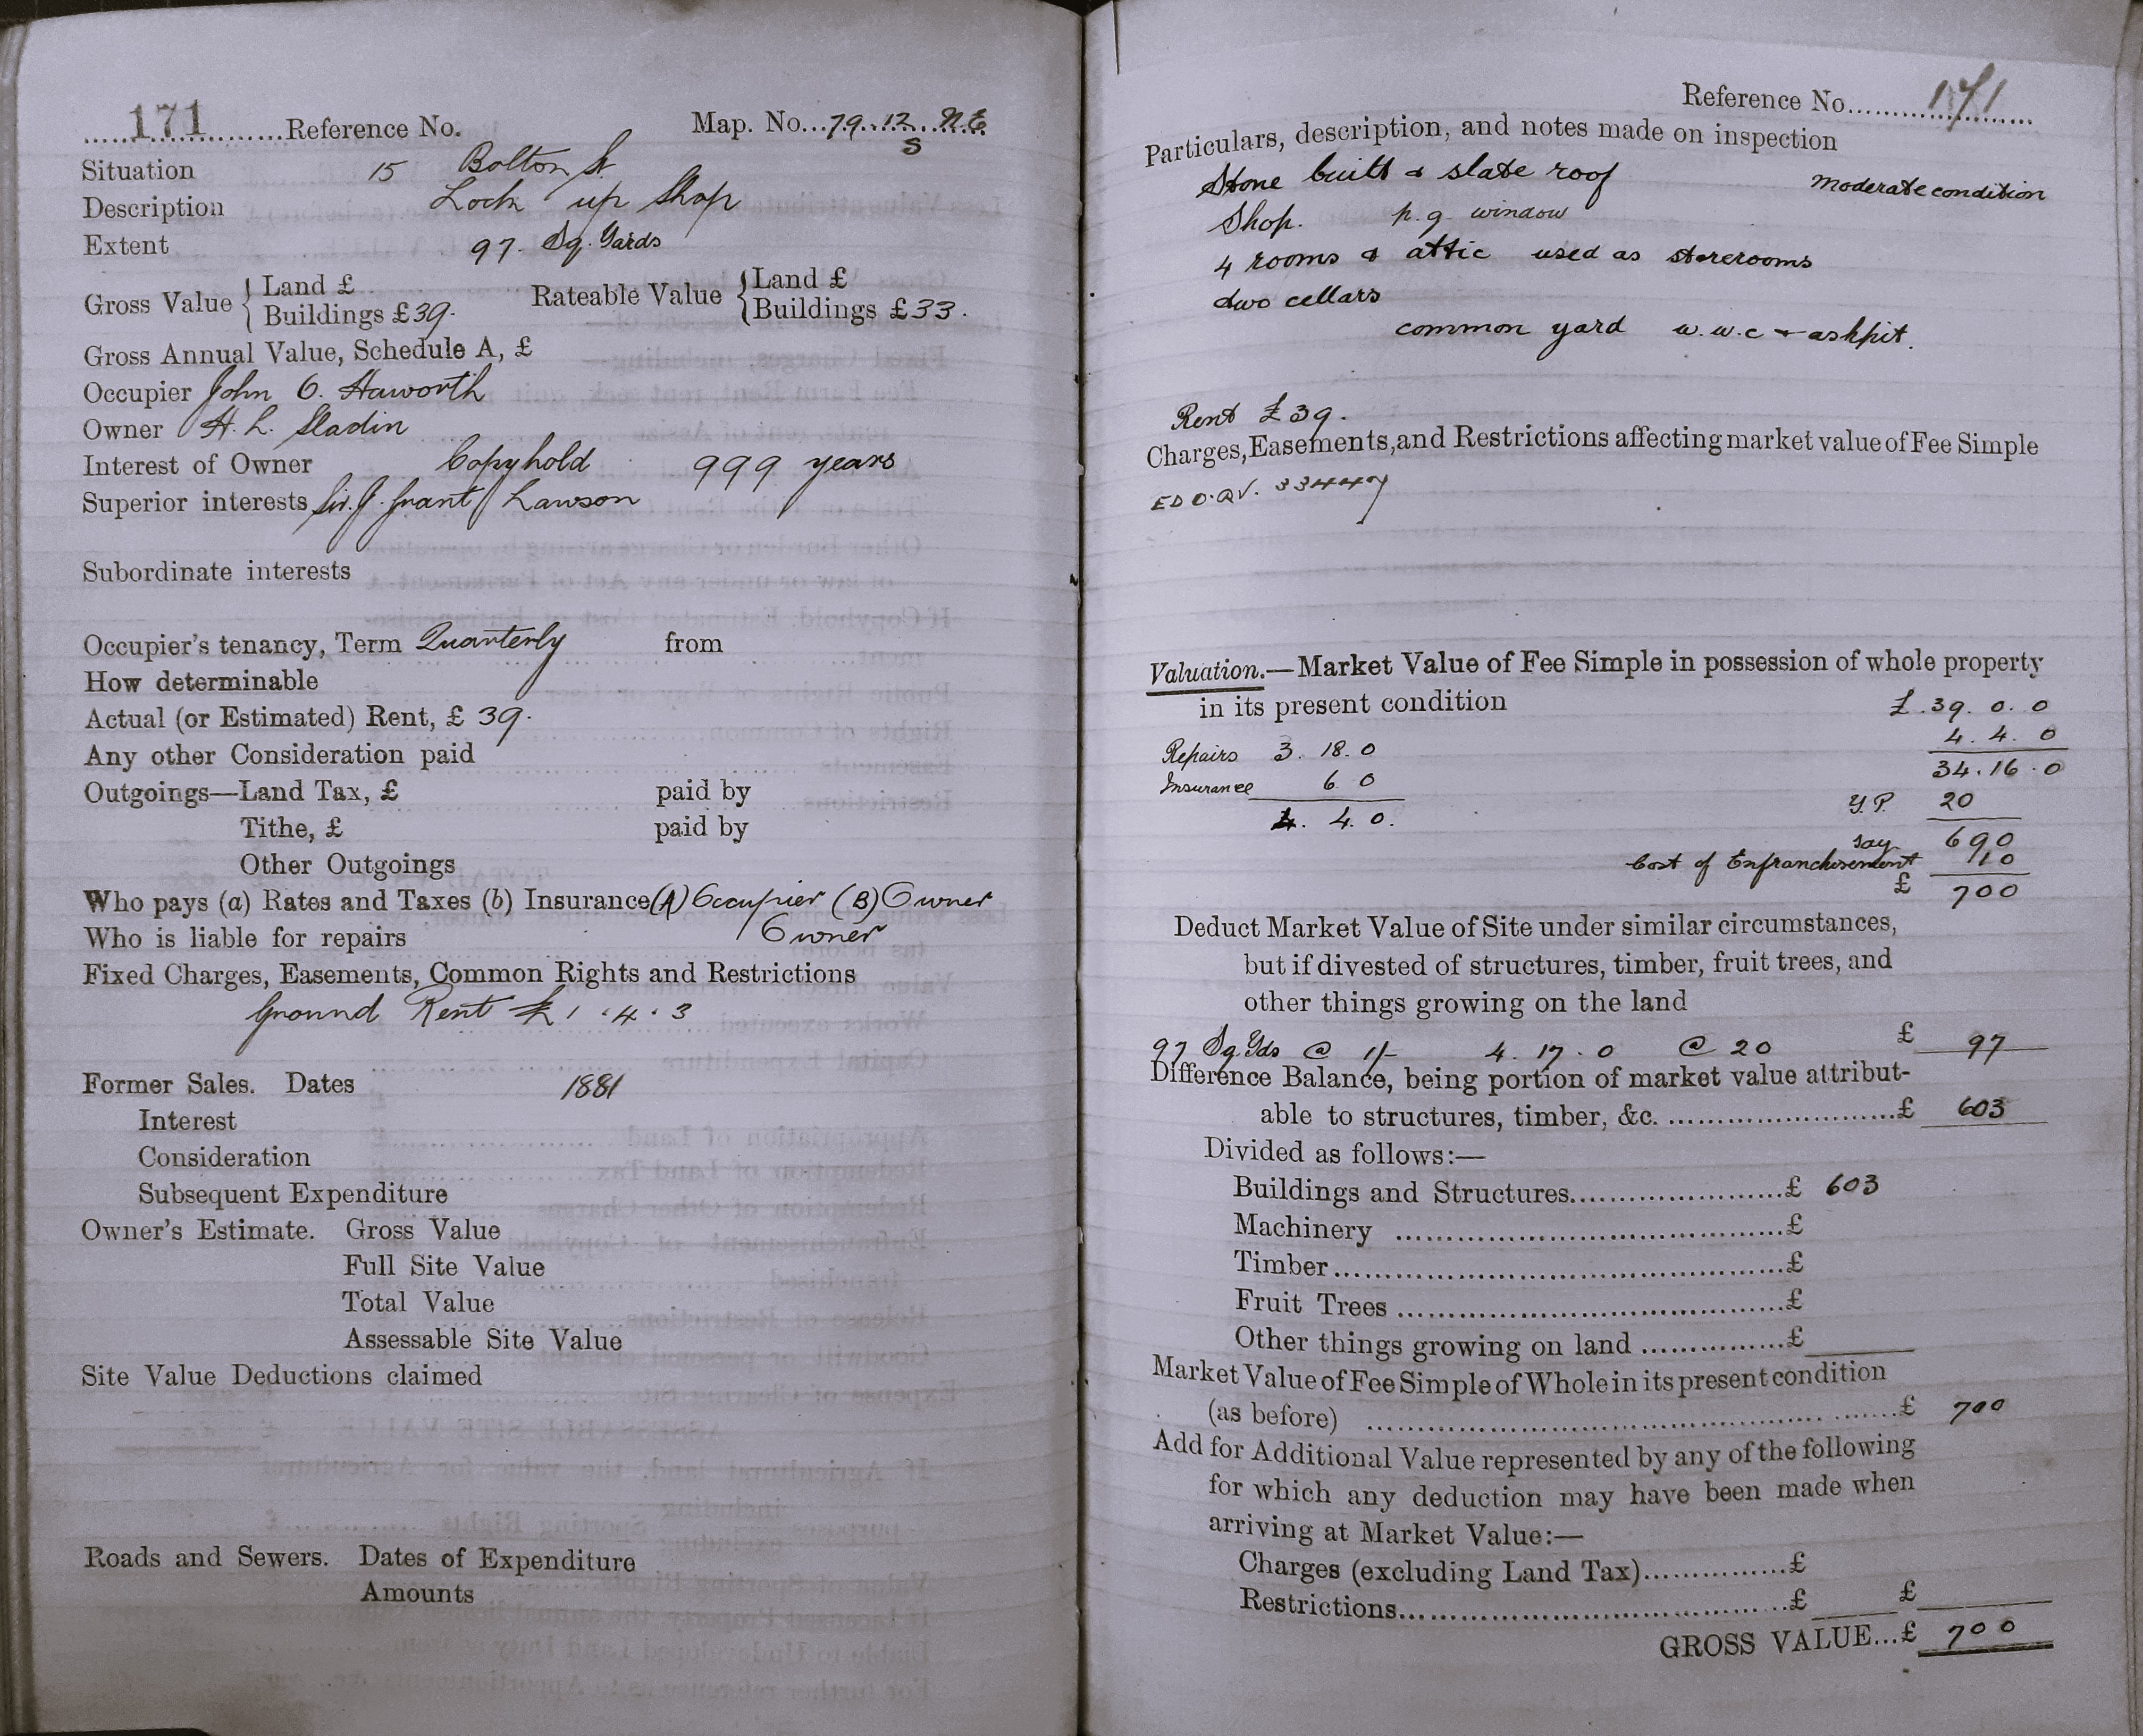 171 Reference No. Map. No. 79. 12. N.E
S
Situation 15 Bolton St.
Description Lock up Shop
Extent 97. Sq. Yards
Gross Value { Land £ Rateable Value { Land £
Buildings £39. Buildings £33.
Gross Annual Value, Schedule A, £
Occupier John O. Haworth
Owner H. L. Sladin
Interest of Owner Copyhold 999 years
Superior interests Sir. J. Grant Lawson
Subordinate interests
Occupier's tenancy, Term Quarterly from
How determinable
Actual (or Estimated) Rent, £ 39.
Any other Consideration paid
Outgoings—Land Tax, £ paid by
Tithe, £ paid by
Other Outgoings
Who pays (a) Rates and Taxes (b) Insurance (A) Occupier (B) Owner
Who is liable for repairs Owner
Fixed Charges, Easements, Common Rights and Restrictions
Ground Rent £1.4.3
Former Sales. Dates 1881
Interest
Consideration
Subsequent Expenditure
Owner's Estimate. Gross Value
Full Site Value
Total Value
Assessable Site Value
Site Value Deductions claimed
Roads and Sewers. Dates of Expenditure
Amounts
Reference No. 171
Particulars, description, and notes made on inspection
Stone built & slate roof Moderate condition
Shop. p.g. window
4 rooms & attic used as storerooms
two cellars
common yard w.w.c & ashpit.
Rent £39.
Charges, Easements, and Restrictions affecting market value of Fee Simple
33447
Valuation.—Market Value of Fee Simple in possession of whole property
in its present condition £.39. 0. 0
Repairs 3. 18. 0 4. 4. 0
Insurance 6 0 34.16.0
4. 4. 0. Y.P. 20
say 690
Cost of Enfranchisement 10
£ 700
Deduct Market Value of Site under similar circumstances,
but if divested of structures, timber, fruit trees, and
other things growing on the land
97 Sq. Yds @ 1/- 4. 17. 0 @ 20 £ 97
Difference Balance, being portion of market value attribut-
able to structures, timber, &c. £ 603
Divided as follows:—
Buildings and Structures £ 603
Machinery £
Timber £
Fruit Trees £
Other things growing on land £
Market Value of Fee Simple of Whole in its present condition
(as before) £ 700
Add for Additional Value represented by any of the following
for which any deduction may have been made when
arriving at Market Value:—
Charges (excluding Land Tax) £
Restrictions £ £
GROSS VALUE...£ 700